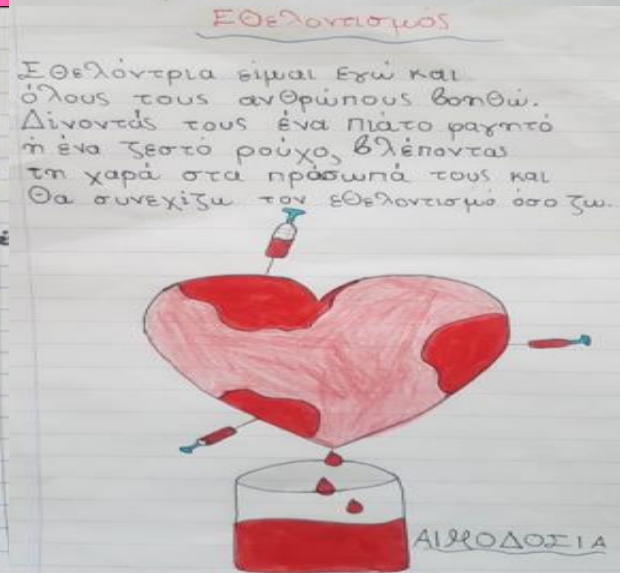 Εθελοντισμός
Εθελόντρια είμαι εγώ και
όλους τους ανθρώπους βοηθώ.
Δίνοντάς τους ένα πιάτο φαγητό
ή ένα ζεστό ρούχο, βλέποντας
τη χαρά στα πρόσωπά τους και
θα συνεχίζω τον εθελοντισμό όσο ζω.
ΑΙΜΟΔΟΣΙΑ